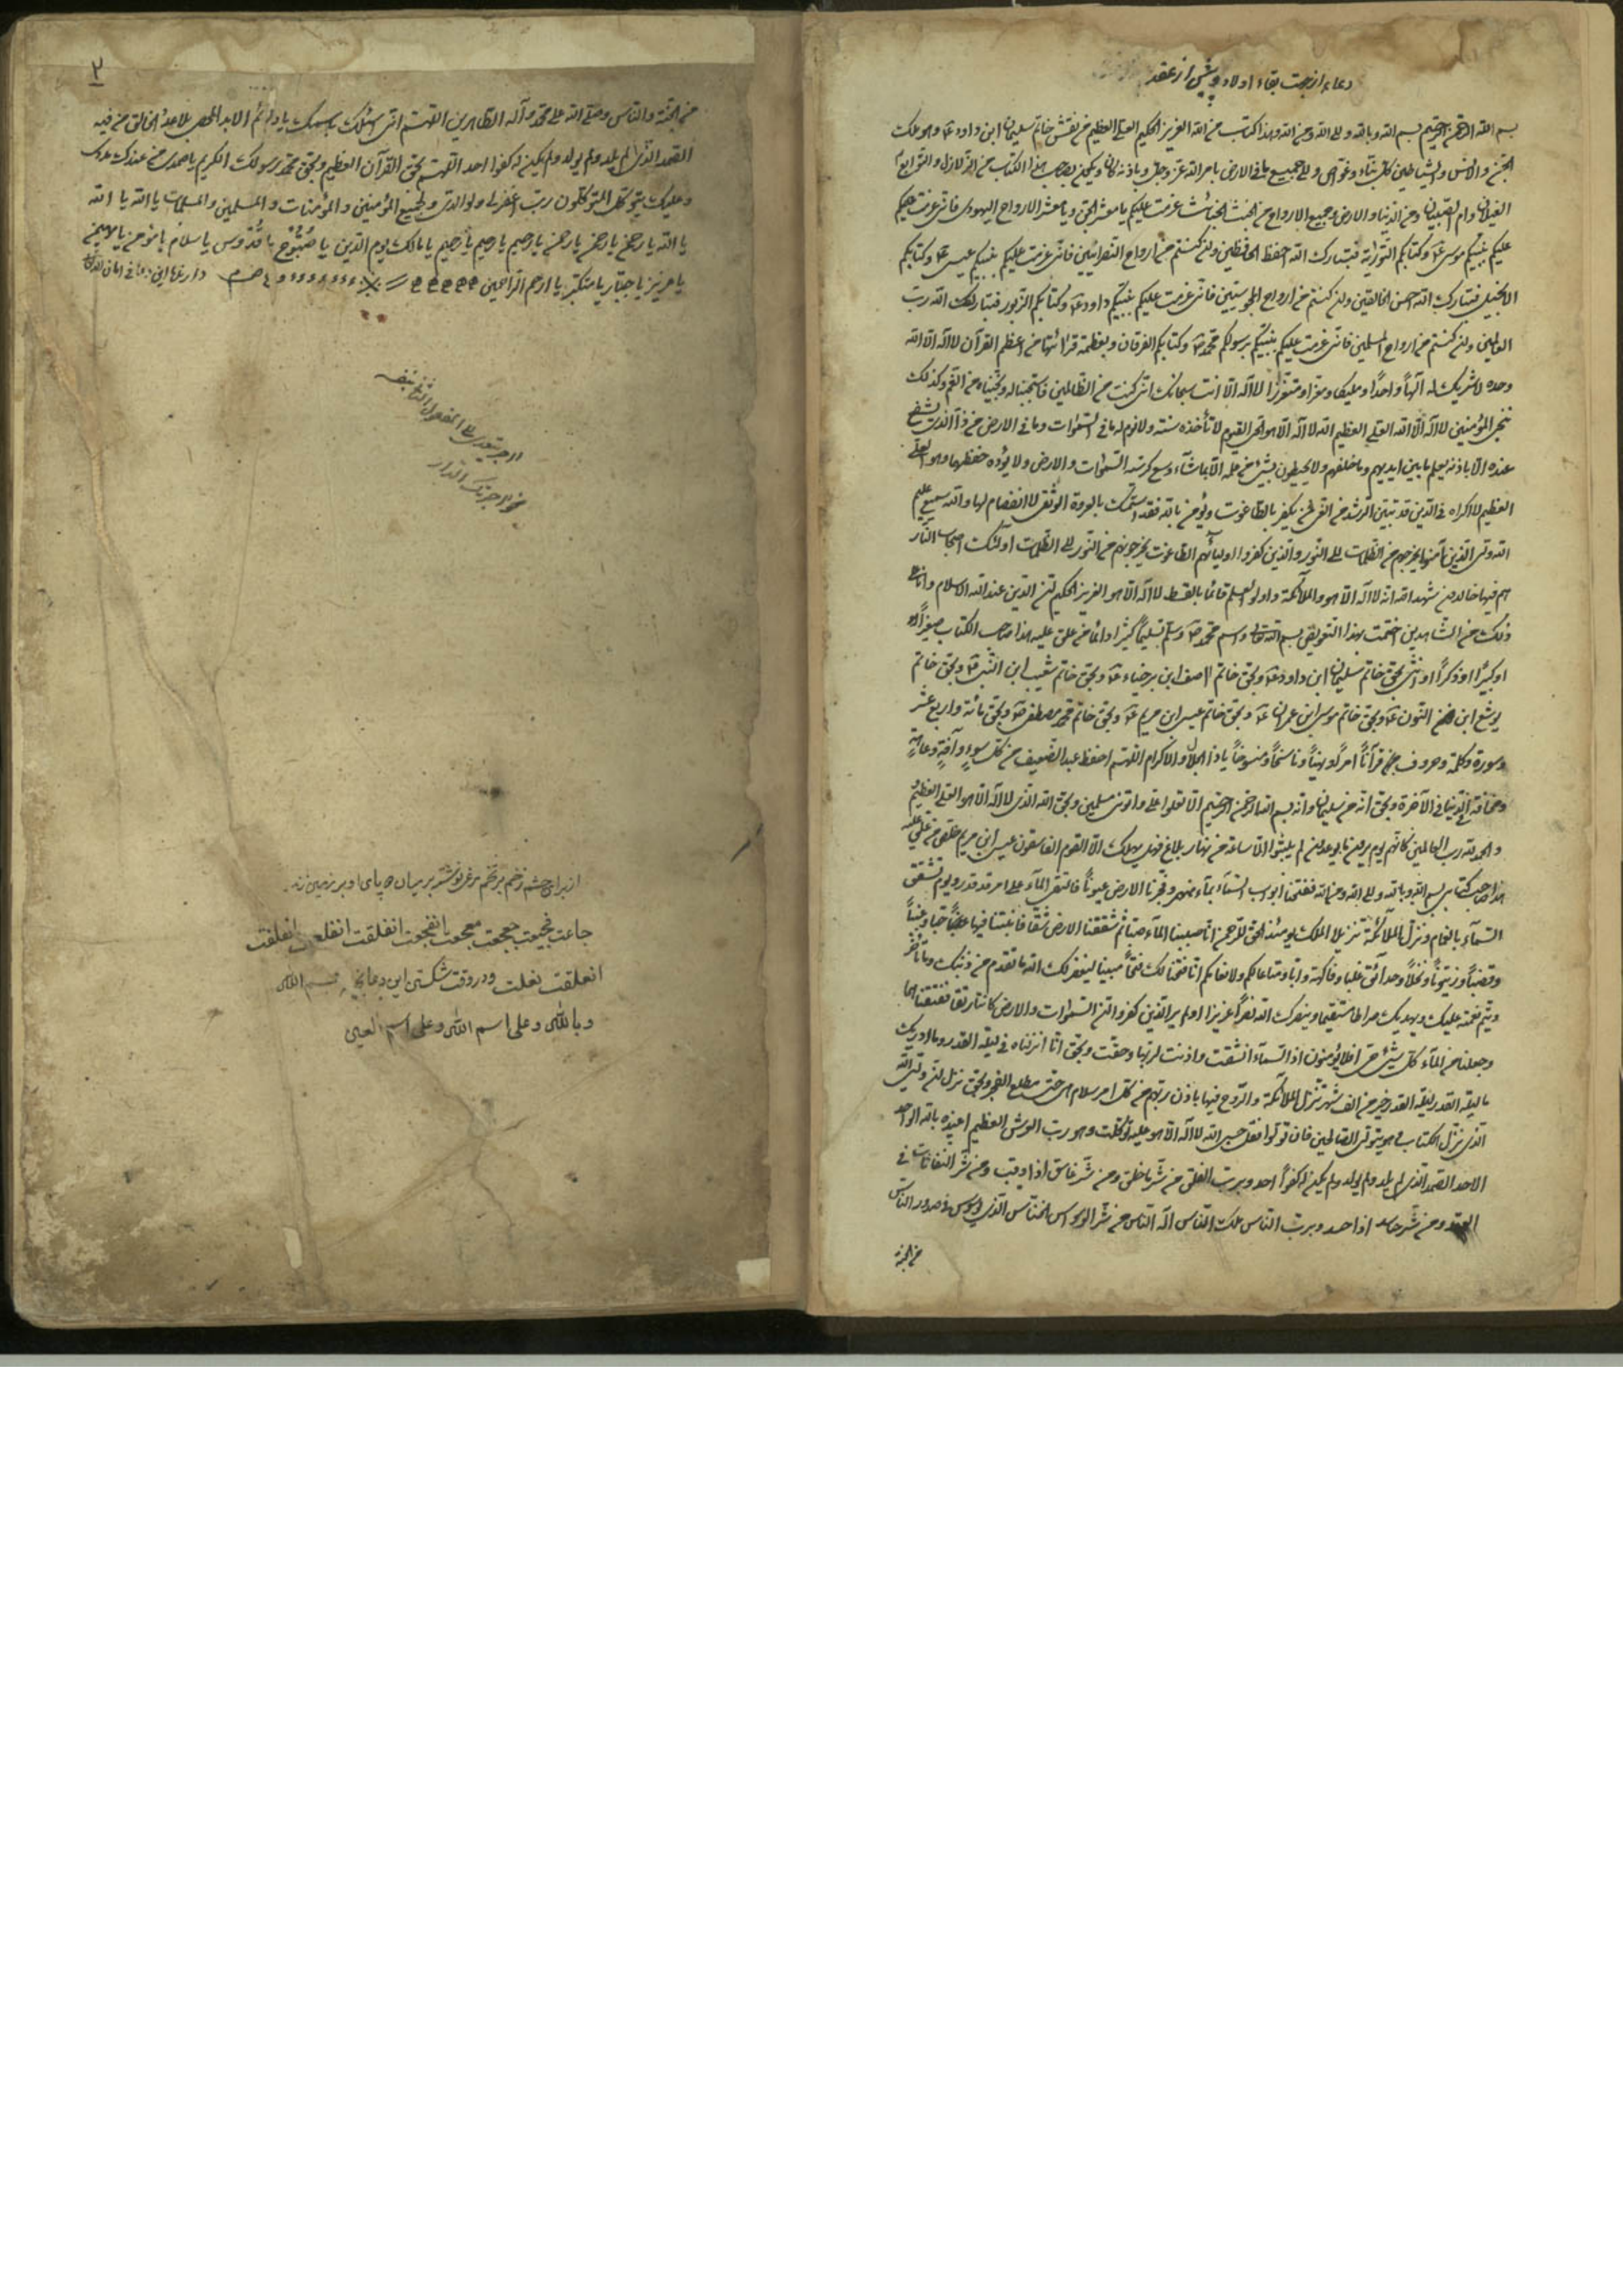 دعاء از جهت بقاء اولاد و پیش از عقد
بسم الله الرحمن الرحیم بسم الله و بالله و الی الله و من الله و هذا کتاب من الله العزیز الحکیم العلی العظیم من نقش خاتم سلیمان ابن داود ع و هو ملک
الجن و الانس و الشیاطین کل بناء و غواص و الی جمیع ما فی الارض بامر الله عز و جل و باذنه کان و یکون بصاحب هذا الکتاب من الزلازل و التوابع
الغیلان و ام الصبیان و من الدنیا و الارض و جمیع الارواح من الخبث الخبائث عزمت علیکم یا معشر الجن و یا معشر الارواح الیهودی فانی عزمت علیکم
علیکم بنبیکم موسی ع و کتابکم التوراة فتبارک الله احفظ الحافظین و ان کنتم من ارواح النصرانیین فانی عزمت علیکم بنبیکم عیسی ع و کتابکم
الانجیل فتبارک الله احسن الخالقین و ان کنتم من ارواح المجوسیین فانی عزمت علیکم بنبیکم داود ع و کتابکم الزبور فتبارک الله رب
العالمین و ان کنتم من ارواح المسلمین فانی عزمت علیکم بنبیکم برسولکم محمد ص و کتابکم الفرقان و بعظمة قرائتها من اعظم القرآن لا اله الا الله
وحده لا شریک له الهاً واحداً و ملیکا و معززا و متعززا لا اله الا انت سبحانک انی کنت من الظالمین فاستجبنا له و نجیناه من الغم و کذلک
ننجی المؤمنین لا اله الا الله العلی العظیم الله لا اله الا هو الحی القیوم لا تأخذه سنة و لا نوم له ما فی السموات و ما فی الارض من ذا الذی یشفع
عنده الا باذنه یعلم ما بین ایدیهم و ما خلفهم و لا یحیطون بشیء من علمه الا بما شآء وسع کرسیه السموات و الارض و لا یؤده حفظهما و هو العلی
العظیم لا اکراه فی الدین قد تبین الرشد من الغی فمن یکفر بالطاغوت و یؤمن بالله فقد استمسک بالعروة الوثقی لا انفصام لها و الله سمیع علیم
الله ولی الذین آمنوا یخرجهم من الظلمات الی النور و الذین کفروا اولیائهم الطاغوت یخرجونهم من النور الی الظلمات اولئک اصحاب النار
هم فیها خالدون شهد الله انه لا اله الا هو و الملآئکة و اولو العلم قائما بالقسط لا اله الا هو العزیز الحکیم ان الدین عند الله الاسلام و انا علی
ذلک من الشاهدین اختمت بهذا التعویذ بسم الله تعالی و اسم محمد ص و سلم تسلیماً کثیرا دائما من علق علیه هذا صاحب الکتاب صغیراً او
او کبیرًا او ذکرًا او انثی بحق خاتم سلیمان ابن داود ع و بحق خاتم اصف ابن برخیاء ع و بحق خاتم شعیب ابن النبی ع و بحق خاتم
یوشع ابن النون ع و بحق خاتم موسی ابن عمران ع و بحق خاتم عیسی ابن مریم ع و بحق خاتم محمد مصطفی ص و بحق مائة و اربع عشر
سورة و کلمة و حروف قرآناً امراً و نهیاً و ناسخاً و منسوخاً یا ذا الجلال و الاکرام اللهم احفظ عبد الضعیف من کل سوء و آفة و عاهة
و مخافة الدنیا فی الآخرة و بحق انه من سلیمان و انه بسم الله الرحمن الرحیم الا تعلوا علی و اتونی مسلمین و بحق الله الذی لا اله الا هو العلی العظیم
و الحمد لله رب العالمین کانهم یوم یرون ما یوعدون لم یلبثوا الا ساعة من نهار بلاغ فهل یهلک الا القوم الفاسقون عیسی ابن مریم من علق علیه
هذا صاحب کتابی بسم الله و بالله و الی الله و من الله ففتحنا ابواب السمآء بمآء منهمر و فجرنا الارض عیوناً فالتقی المآء علی امر قد قدر و یوم تشقق
السمآء بالغمام و نزل الملآئکة تنزیلا الملک یومئذ الحق للرحمن انا صببنا المآء صبا ثم شققنا الارض شقاً فانبتنا فیها حباً و عنباً
و قضباً و زیتوناً و نخلاً و حدآئق غلبا و فاکهة و ابا متاعا لکم و لانعامکم انا فتحنا لک فتحاً مبینا لیغفر لک الله ما تقدم من ذنبک و ما تأخر
و یتم نعمته علیک و یهدیک صراطا مستقیما و ینصرک الله نصراً عزیزا اولم یر الذین کفروا ان السموات و الارض کانتا رتقا ففتقناهما
و جعلنا من المآء کل شیئ حی افلا یؤمنون اذا السمآء انشقت و اذنت لربها و حقت و بحق انا انزلناه فی لیلة القدر و ما ادریک
ما لیلة القدر لیلة القدر خیر من الف شهر تنزل الملآئکة و الروح فیها باذن ربهم من کل امر سلام هی حتی مطلع الفجر و بحق نزل ان ولیی الله
الذی نزل الکتاب و هو یتولی الصالحین فان تولوا فقل حسبی الله لا اله الا هو علیه توکلت و هو رب العرش العظیم اعیذه بالله الواحد
الاحد الصمد الذی لم یلد و لم یولد و لم یکن له کفواً احد و برب الفلق من شر ما خلق و من شر غاسق اذا وقب و من شر النفاثات فی
العقد و من شر حاسد اذا حسد و برب الناس ملک الناس اله الناس من شر الوسواس الخناس الذی یوسوس فی صدور الناس
من الجنة
٢
من الجنة و الناس و صلی الله علی محمد و آله الطاهرین اللهم انی اسئلک باسمک یا دائم الابد المحصی بلا عدد الخالق من فیه
الصمد الذی لم یلد و لم یولد و لم یکن له کفوا احد اللهم بحق القرآن العظیم و بحق محمد رسولک الکریم یا صمدی من عندک مددی
و علیک یتوکل المتوکلون رب اغفر لی و لوالدی و لجمیع المؤمنین و المؤمنات و المسلمین و المسلمات یا الله یا الله
یا الله یا رحمن یا رحمن یا رحمن یا رحیم یا رحیم یا رحیم یا مالک یوم الدین یا صبوح یا قدوس یا سلام یا مؤمن یا مهیمن
یا عزیز یا جبار یا متکبر یا ارحم الراحمین
المفعول الثانی بنفسه
الدار
از برای چشم زخم بر تخم مرغ نوشته بر میان پای او بر زمین زند
انفلقت
انفلقت و در وقت شکستن این دعا بسم الله
و بالله و علی اسم الله و علی اسم العین